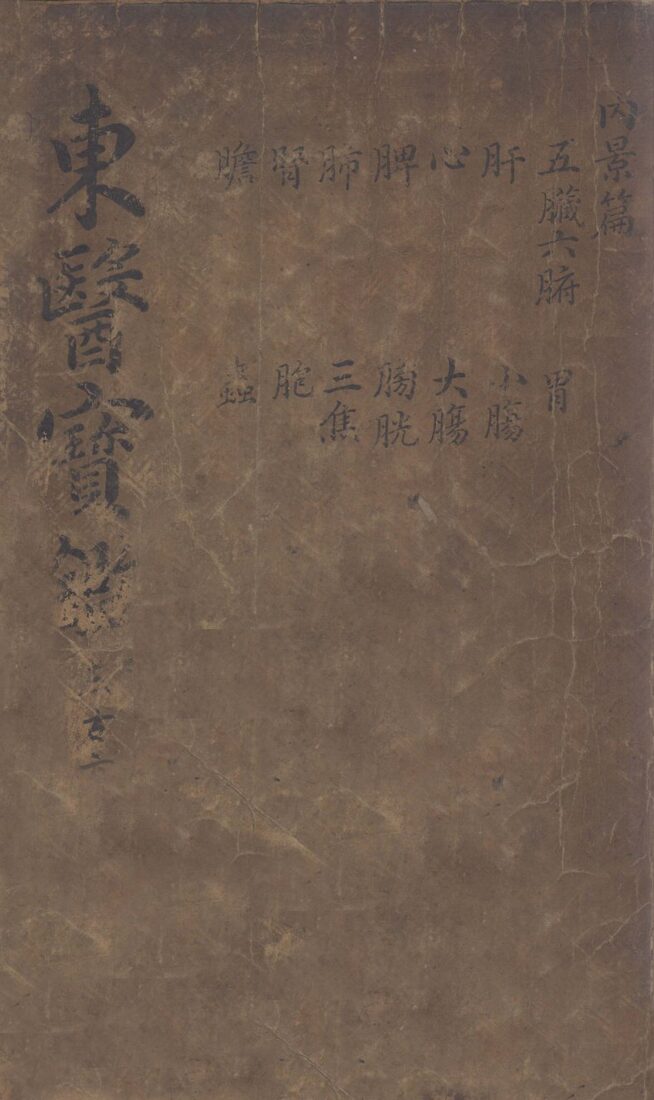 內景篇
五臟六腑
肝
心
脾
肺
腎
膽
胃
小膓
大膓
膀胱
三焦
胞
蟲
東醫寶鑑